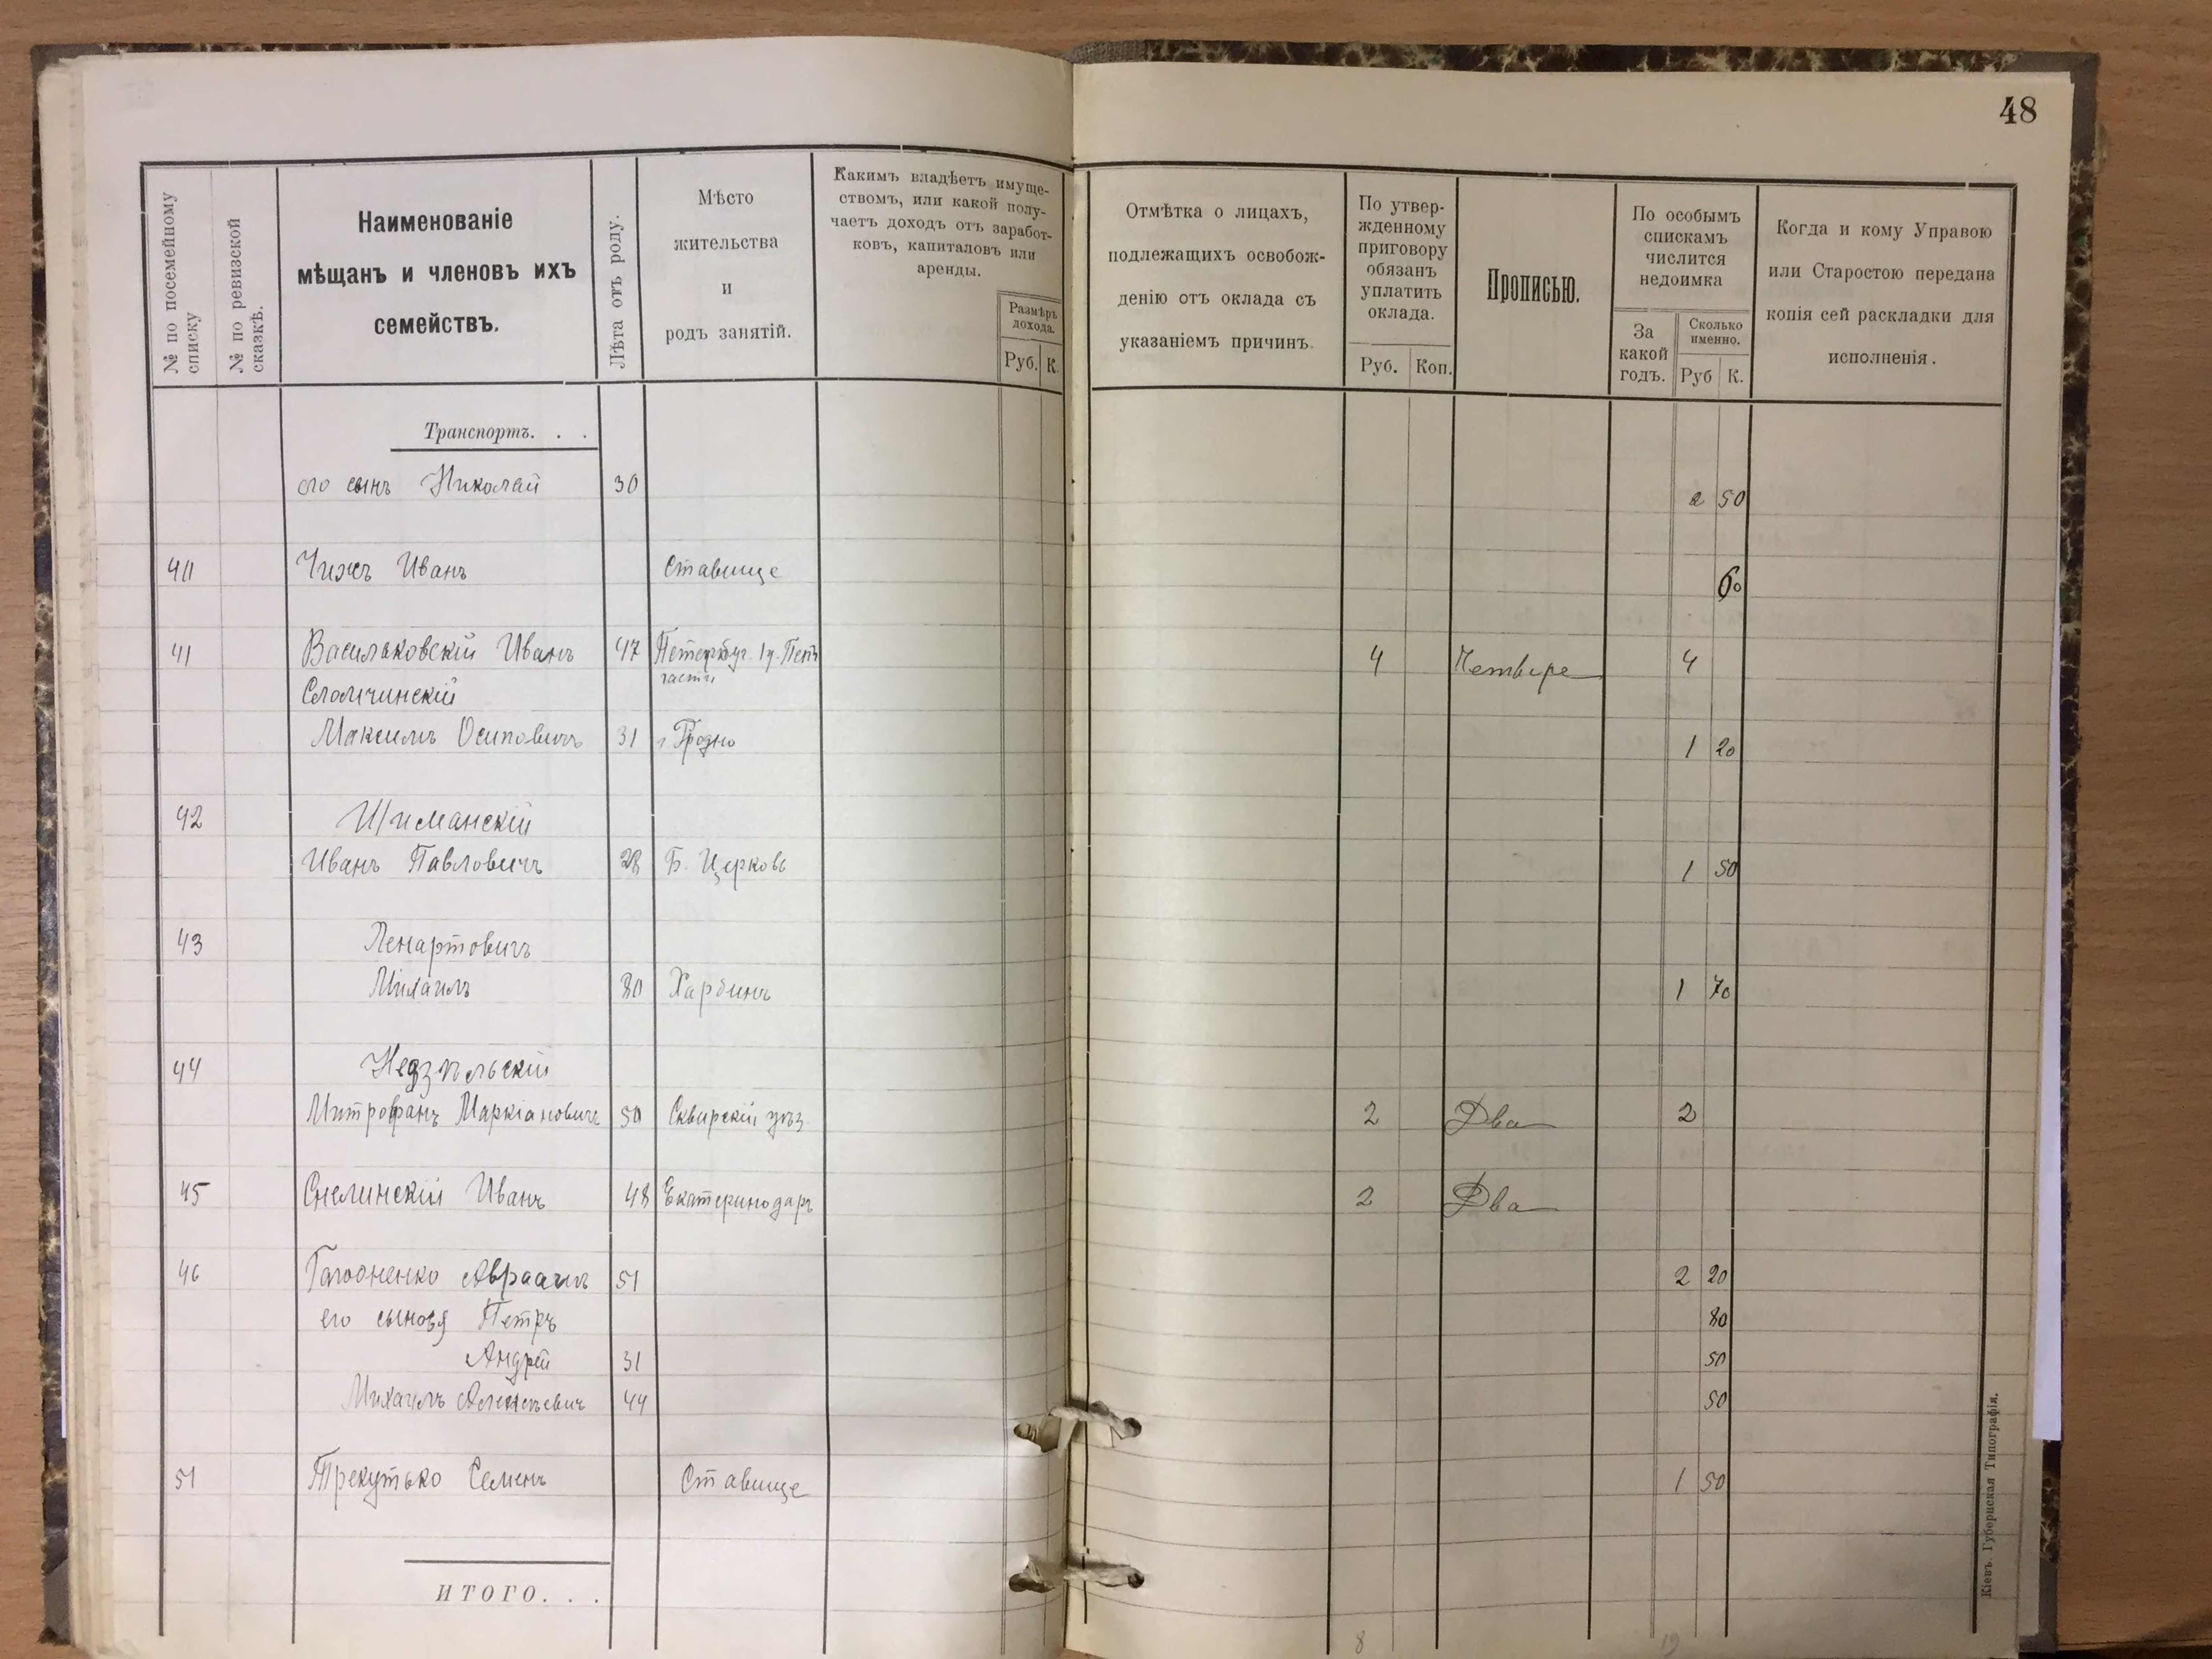 48
№ по посемейному списку
№ по ревизской сказкѣ.
Наименованіе
мѣщанъ и членовъ ихъ
семействъ.
Лѣта отъ роду.
Мѣсто
жительства
и
родъ занятій.
Какимъ владѣетъ имуще-
ствомъ, или какой полу-
чаетъ доходъ отъ заработ-
ковъ, капиталовъ или
аренды.
Размѣръ
дохода.
Руб. К.
Отмѣтка о лицахъ,
подлежащихъ освобож-
денію отъ оклада съ
указаніемъ причинъ.
По утвер-
жденному
приговору
обязанъ
уплатить
оклада.
Руб. Коп.
Прописью.
По особымъ
спискамъ
числится
недоимка
За
какой
годъ.
Сколько
именно.
Руб К.
Когда и кому Управою
или Старостою передана
копія сей раскладки для
исполненія.
Транспортъ. . .
его сынъ Николай 30 2 50
40 Чижъ Иванъ Ставище 60
41 Васильковскій Иванъ 47 Петербург. 1у. Петъ части 4 Четыре 4
Сломчинскій
Максимъ Осиповичъ 31 г. Гродно 1 20
42 Шиманскій
Иванъ Павловичъ 28 Б. Церковь 1 50
43 Ленартовичъ
Михаилъ 30 Харбинъ 1 70
44 Недзѣльскій
Митрофанъ Маркіановичъ 50 Сквирскій уѣз. 2 Два 2
45 Снелинскій Иванъ 48 Екатеринодаръ 2 Два
46 Авраамъ 51 2 20
его сыновя Петръ 80
Андрей 31 50
Михаилъ Алексѣевичъ 44 50
51 Трекутько Семенъ Ставище 1 50
ИТОГО. . .
8 19
Кіевъ. Губернская Типографія.